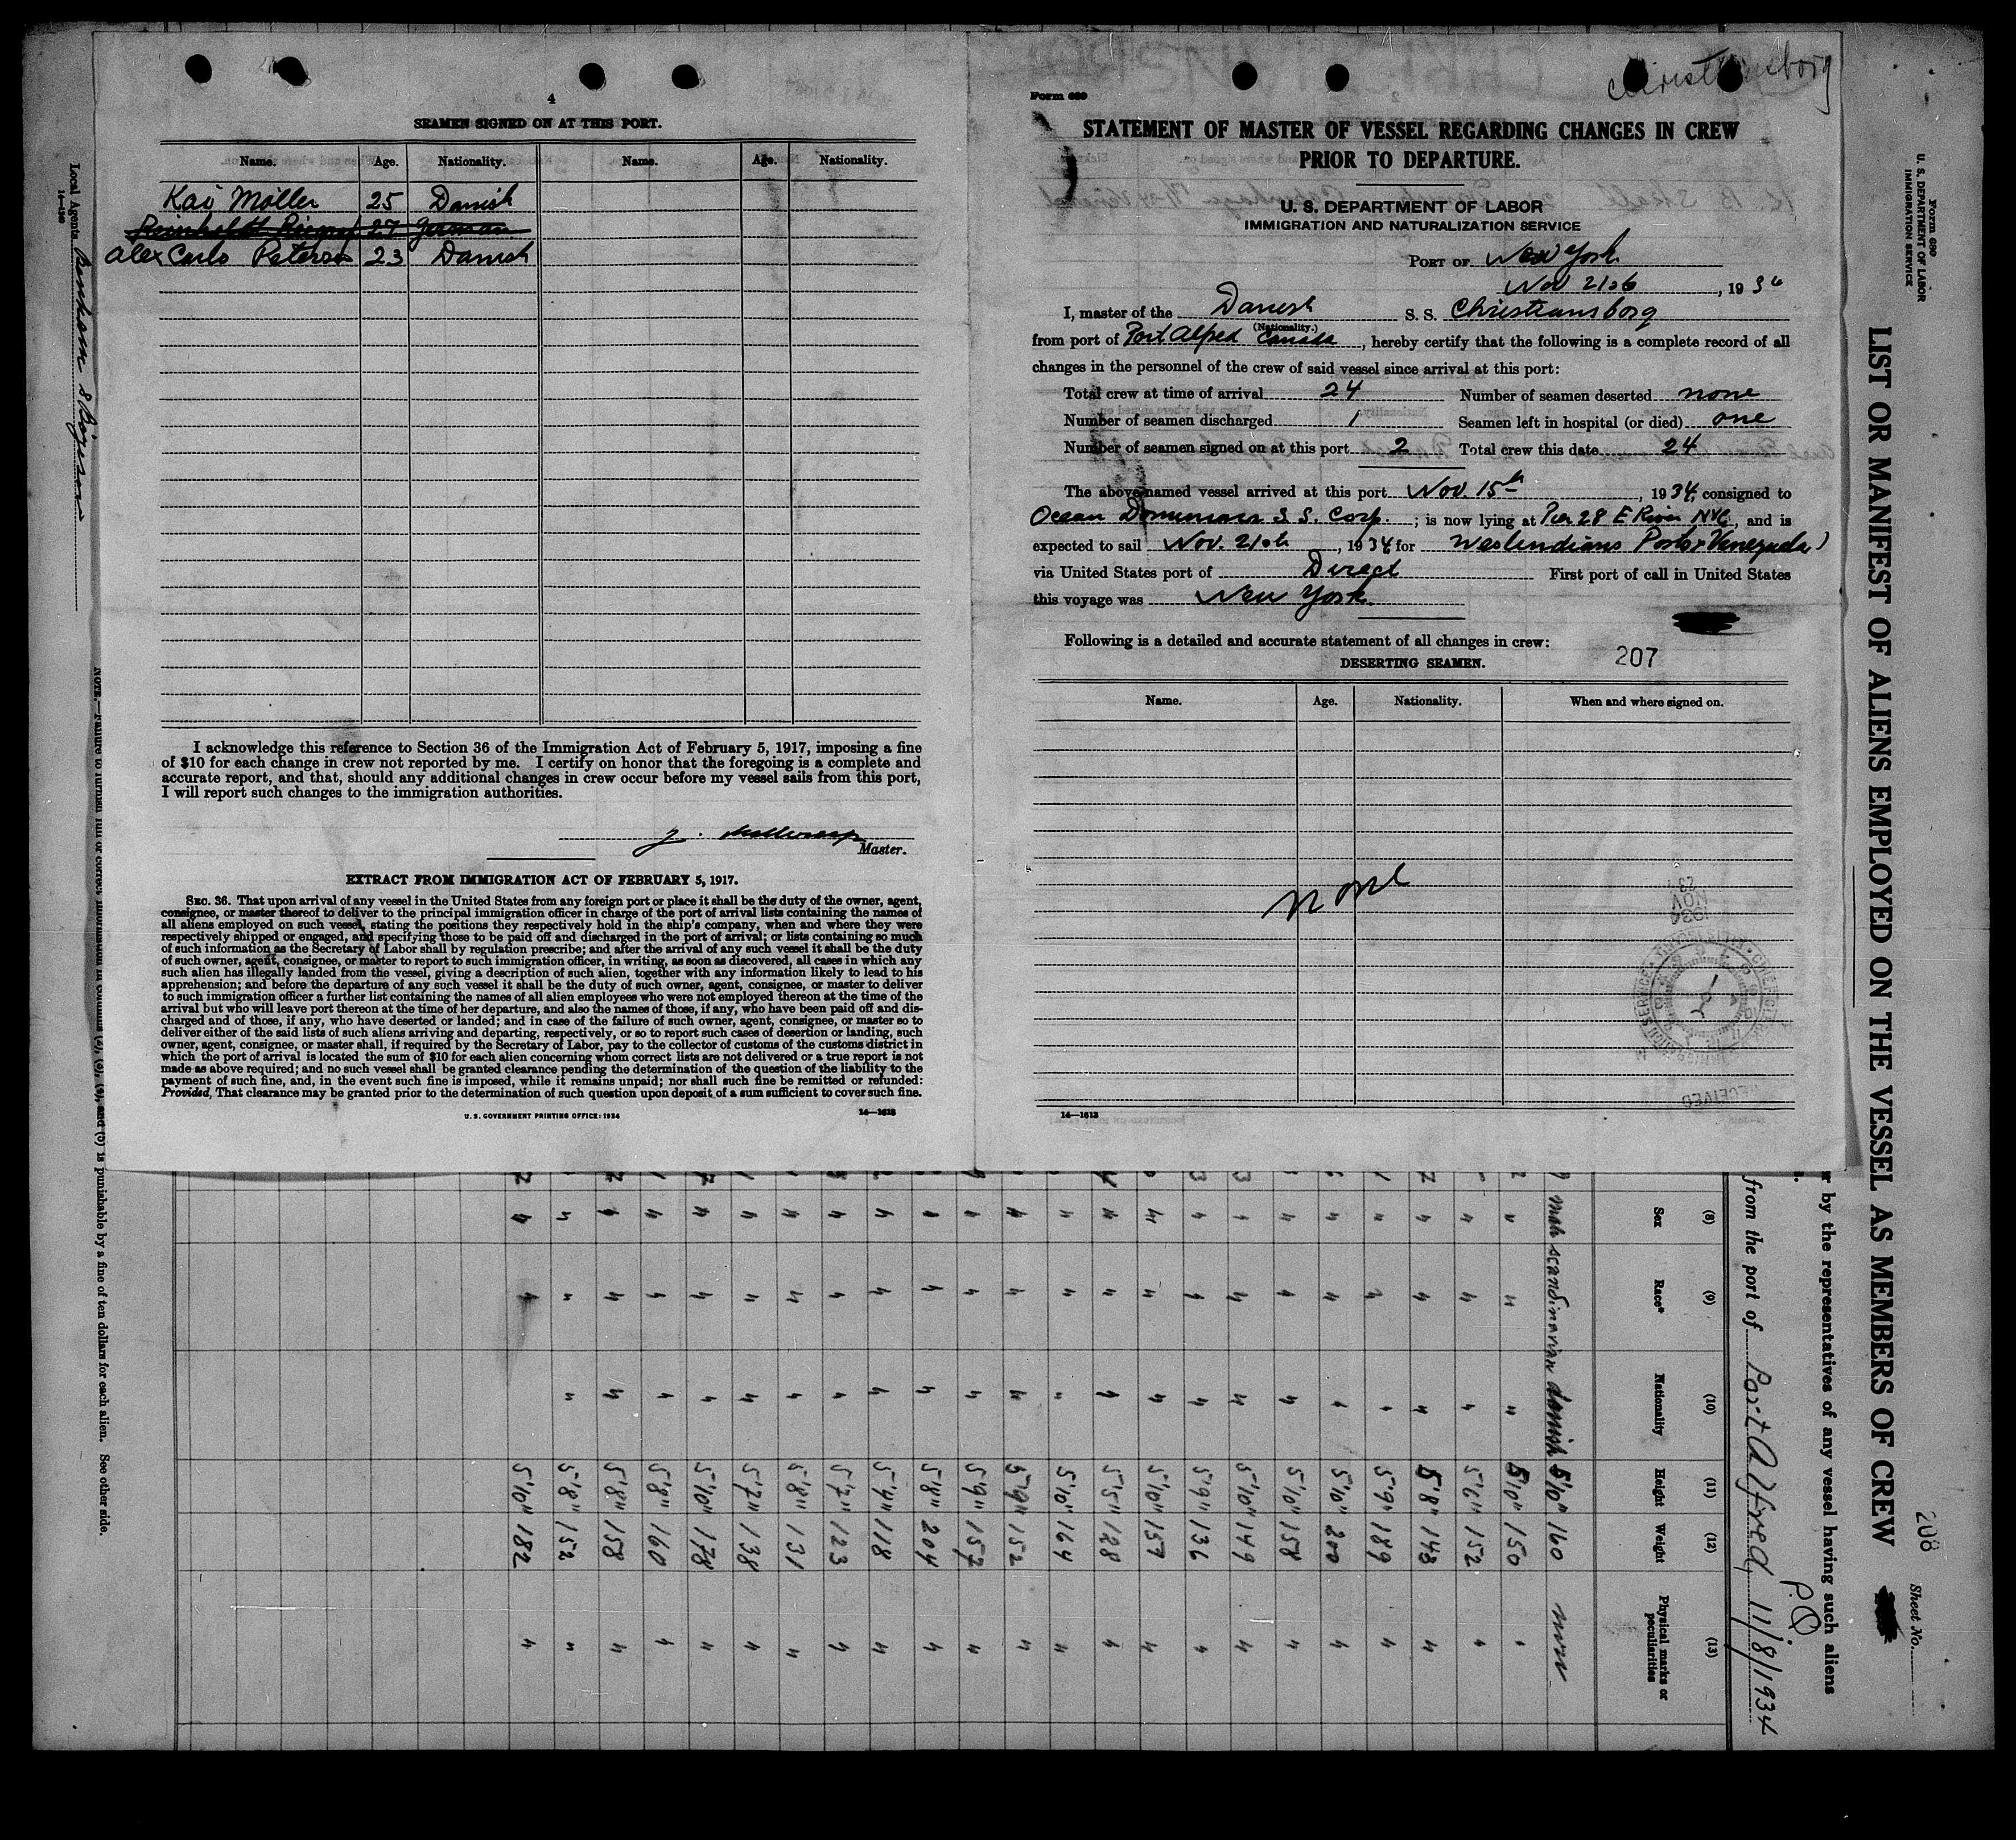 4
SEAMEN SIGNED ON AT THIS PORT.
Name. Age. Nationality. Name. Age. Nationality.
Kai Möller 25 Danish
27 German
Alex Carlo Peterson 23 Danish
I acknowledge this reference to Section 36 of the Immigration Act of February 5, 1917, imposing a fine
of $10 for each change in crew not reported by me. I certify on honor that the foregoing is a complete and
accurate report, and that, should any additional changes in crew occur before my vessel sails from this port,
I will report such changes to the immigration authorities.
Master.
EXTRACT FROM IMMIGRATION ACT OF FEBRUARY 5, 1917.
SEC. 36. That upon arrival of any vessel in the United States from any foreign port or place it shall be the duty of the owner, agent,
consignee, or master thereof to deliver to the principal immigration officer in charge of the port of arrival lists containing the names of
all aliens employed on such vessel, stating the positions they respectively hold in the ship's company, when and where they were
respectively shipped or engaged, and specifying those to be paid off and discharged in the port of arrival; or lists containing so much
of such information as the Secretary of Labor shall by regulation prescribe; and after the arrival of any such vessel it shall be the duty
of such owner, agent, consignee, or master to report to such immigration officer, in writing, as soon as discovered, all cases in which any
such alien has illegally landed from the vessel, giving a description of such alien, together with any information likely to lead to his
apprehension; and before the departure of any such vessel it shall be the duty of such owner, agent, consignee, or master to deliver
to such immigration officer a further list containing the names of all alien employees who were not employed thereon at the time of the
arrival but who will leave port thereon at the time of her departure, and also the names of those, if any, who have been paid off and dis-
charged and of those, if any, who have deserted or landed; and in case of the failure of such owner, agent, consignee, or master so to
deliver either of the said lists of such aliens arriving and departing, respectively, or so to report such cases of desertion or landing, such
owner, agent, consignee, or master shall, if required by the Secretary of Labor, pay to the collector of customs of the customs district in
which the port of arrival is located the sum of $10 for each alien concerning whom correct lists are not delivered or a true report is not
made as above required; and no such vessel shall be granted clearance pending the determination of the question of the liability to the
payment of such fine, and, in the event such fine is imposed, while it remains unpaid; nor shall such fine be remitted or refunded:
Provided, That clearance may be granted prior to the determination of such question upon deposit of a sum sufficient to cover such fine.
U. S. GOVERNMENT PRINTING OFFICE: 1934 14—1613
Christiansborg
Form 689
STATEMENT OF MASTER OF VESSEL REGARDING CHANGES IN CREW
PRIOR TO DEPARTURE.
U. S. DEPARTMENT OF LABOR
IMMIGRATION AND NATURALIZATION SERVICE
PORT OF New York
Nov 21st, 1934
I, master of the Danish S. S. Christiansborg
(Nationality.)
from port of Port Alfred Canada, hereby certify that the following is a complete record of all
changes in the personnel of the crew of said vessel since arrival at this port:
Total crew at time of arrival 24 Number of seamen deserted none
Number of seamen discharged 1 Seamen left in hospital (or died) one
Number of seamen signed on at this port 2 Total crew this date 24
The above-named vessel arrived at this port Nov. 15th, 1934, consigned to
Ocean Dominion S. S. Corp.; is now lying at Pier 28 E River NYC, and is
expected to sail Nov. 21st, 1934 for Westindians Ports + Venezuela
via United States port of Direct First port of call in United States
this voyage was New York.
Following is a detailed and accurate statement of all changes in crew:
207
DESERTING SEAMEN.
Name. Age. Nationality. When and where signed on.
none
14—1613
Local Agents
NOTE.—Failure to furnish full or correct information in columns
is punishable by a fine of ten dollars for each alien. See other side.
Form 680
U. S. DEPARTMENT OF LABOR
IMMIGRATION SERVICE
LIST OR MANIFEST OF ALIENS EMPLOYED ON THE VESSEL AS MEMBERS OF CREW
208
Sheet No.
r by the representatives of any vessel having such aliens
from the port of Port Alfred, P.Q. 11/8/1934
(8) (9) (10) (11) (12) (13)
Sex Race* Nationality Height Weight Physical marks or peculiarities
male scandinavian danish 5'10" 160 none
" " " 5'10" 150 "
" " " 5'6" 152 "
" " " 5'8" 148 "
" " " 5'9" 189 "
" " " 5'10" 200 "
" " " 5'10" 158 "
" " " 5'10" 149 "
" " " 5'9" 136 "
" " " 5'10" 157 "
" " " 5'5" 128 "
" " " 5'10" 164 "
" " " 5'9" 152 "
" " " 5'9" 157 "
" " " 5'8" 204 "
" " " 5'4" 118 "
" " " 5'7" 123 "
" " " 5'8" 131 "
" " " 5'7" 138 "
" " " 5'10" 178 "
" " " 5'8" 160 "
" " " 5'8" 158 "
" " " 5'8" 152 "
" " 5'10" 182 "